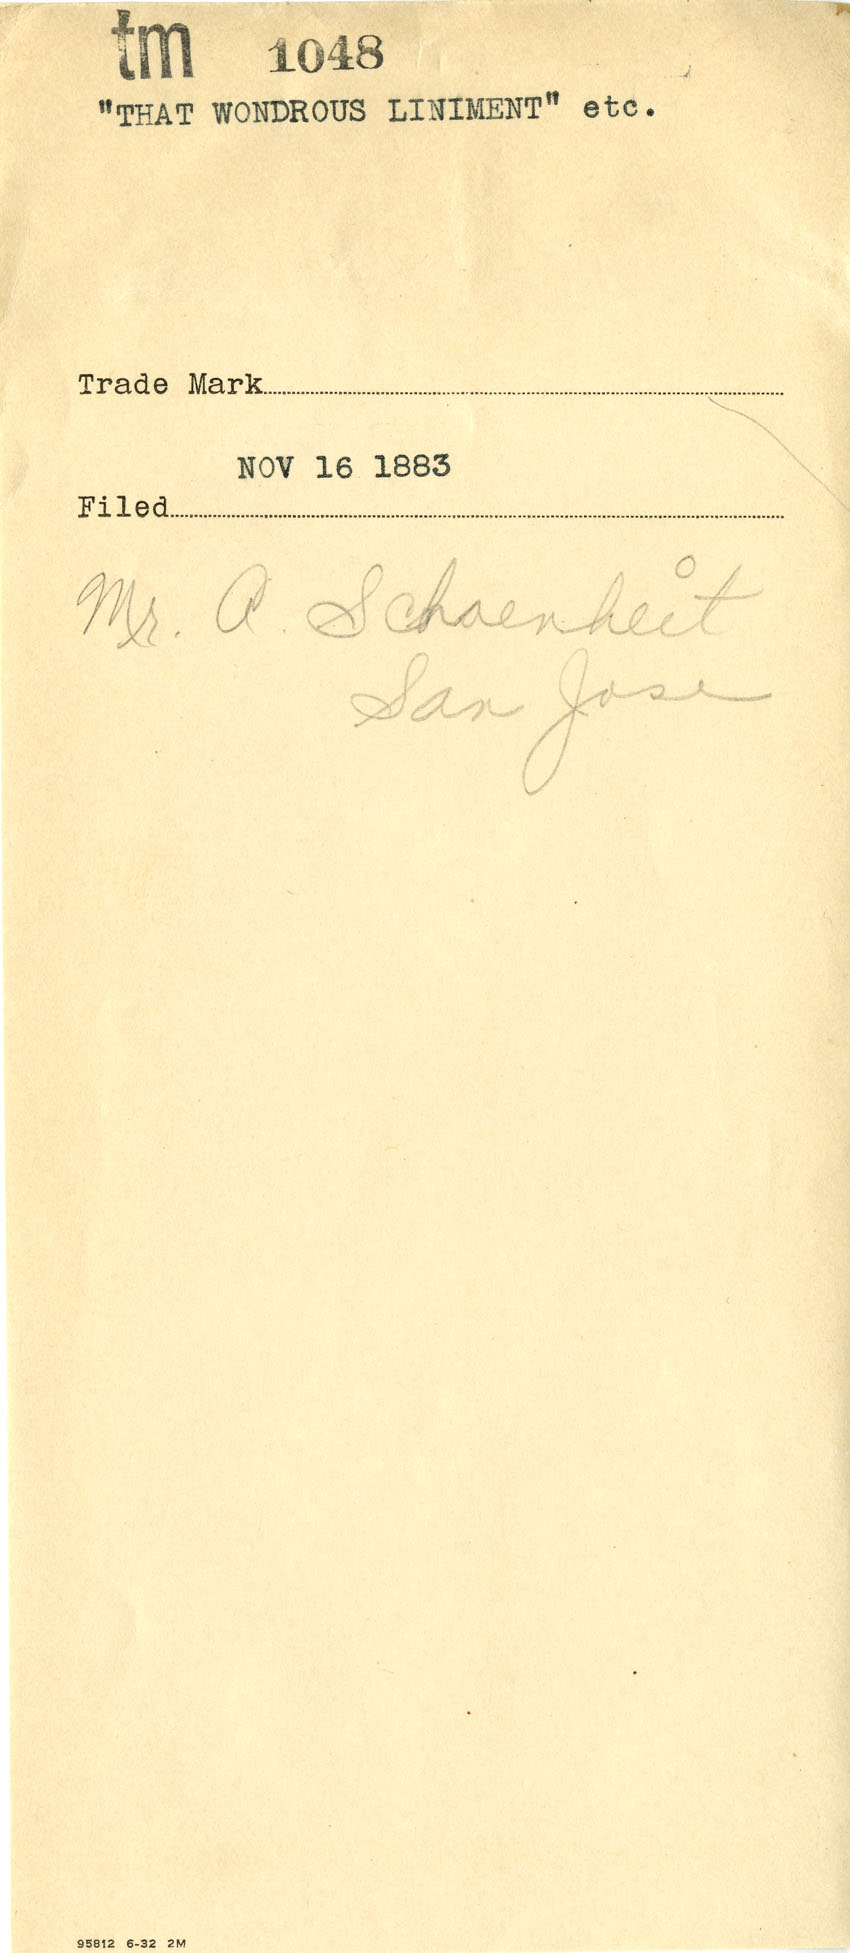 tm 1048
"THAT WONDROUS LINIMENT" etc.
Trade Mark
NOV 16 1883
Filed
Mr. A. Schoenheit
San Jose
95812 6-32 2M